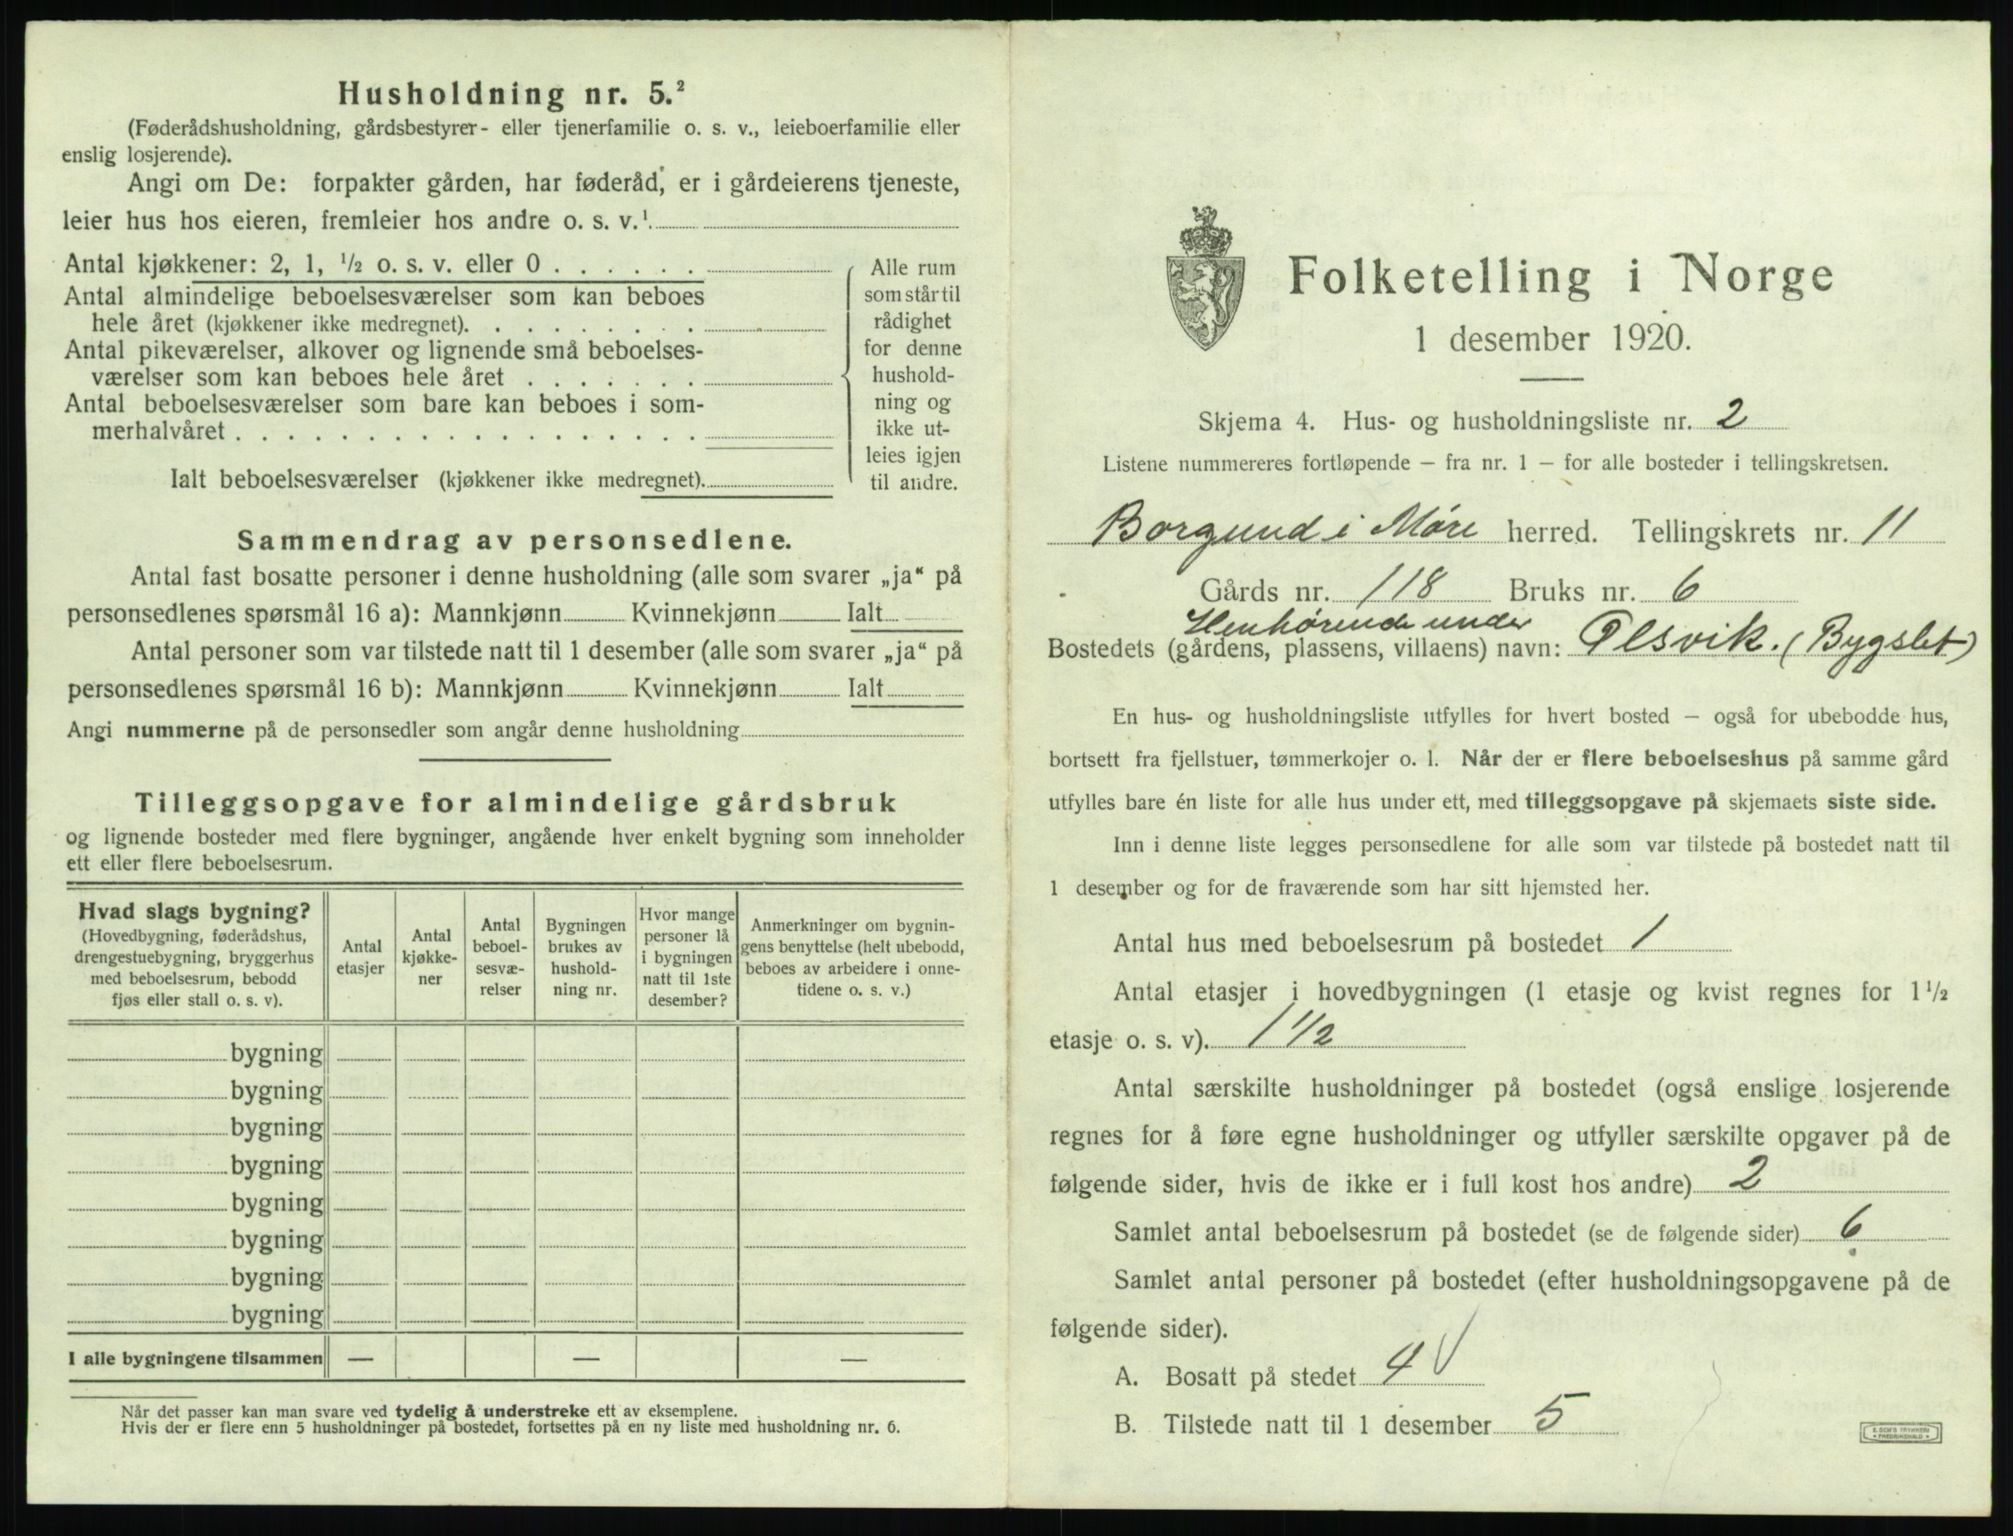 Husholdning nr. 5.²
(Føderådshusholdning, gårdsbestyrer- eller tjenerfamilie o. s. v., leieboerfamilie eller
enslig losjerende).
Angi om De: forpakter gården, har føderåd, er i gårdeierens tjeneste,
leier hus hos eieren, fremleier hos andre o. s. v.¹
Antal kjøkkener: 2, 1, ½ o. s. v. eller 0 . . . . . .
Antal almindelige beboelsesværelser som kan beboes
hele året (kjøkkener ikke medregnet). . . . . . . . .
Antal pikeværelser, alkover og lignende små beboelses-
værelser som kan beboes hele året . . . . . . .
Antal beboelsesværelser som bare kan beboes i som-
merhalvåret . . . . . . . . . . . . . . . . . .
Ialt beboelsesværelser (kjøkkener ikke medregnet).
Alle rum
som står til
rådighet
for denne
hushold-
ning og
ikke ut-
leies igjen
til andre.
Sammendrag av personsedlene.
Antal fast bosatte personer i denne husholdning (alle som svarer „ja“ på
personsedlenes spørsmål 16 a): Mannkjønn Kvinnekjønn Ialt
Antal personer som var tilstede natt til 1 desember (alle som svarer „ja“ på
personsedlenes spørsmål 16 b): Mannkjønn Kvinnekjønn Ialt
Angi nummerne på de personsedler som angår denne husholdning
Tilleggsopgave for almindelige gårdsbruk
og lignende bosteder med flere bygninger, angående hver enkelt bygning som inneholder
ett eller flere beboelsesrum.
Hvad slags bygning?
(Hovedbygning, føderådshus,
drengestuebygning, bryggerhus
med beboelsesrum, bebodd
fjøs eller stall o. s. v).
Antal
etasjer
Antal
kjøkke-
ner
Antal
beboel-
sesvæ-
relser
Bygningen
brukes av
hushold-
ning nr.
Hvor mange
personer lå
i bygningen
natt til 1ste
desember?
Anmerkninger om bygnin-
gens benyttelse (helt ubebodd,
beboes av arbeidere i onne-
tidene o. s. v.)
bygning
bygning
bygning
bygning
bygning
bygning
bygning
bygning
I alle bygningene tilsammen — — —
Når det passer kan man svare ved tydelig å understreke ett av eksemplene.
Hvis der er flere enn 5 husholdninger på bostedet, fortsettes på en ny liste med husholdning nr. 6.
Folketelling i Norge
1 desember 1920.
Skjema 4. Hus- og husholdningsliste nr. 2
Listene nummereres fortløpende – fra nr. 1 – for alle bosteder i tellingskretsen.
Borgund i Møre herred. Tellingskrets nr. 11
Gårds nr. 118 Bruks nr. 6
Henhørende under
Bostedets (gårdens, plassens, villaens) navn: Olsvik. (Bygslet)
En hus- og husholdningsliste utfylles for hvert bosted – også for ubebodde hus,
bortsett fra fjellstuer, tømmerkojer o. l. Når der er flere beboelseshus på samme gård
utfylles bare én liste for alle hus under ett, med tilleggsopgave på skjemaets siste side.
Inn i denne liste legges personsedlene for alle som var tilstede på bostedet natt til
1 desember og for de fraværende som har sitt hjemsted her.
Antal hus med beboelsesrum på bostedet 1
Antal etasjer i hovedbygningen (1 etasje og kvist regnes for 1½
etasje o. s. v). 1 1/2
Antal særskilte husholdninger på bostedet (også enslige losjerende
regnes for å føre egne husholdninger og utfyller særskilte opgaver på de
følgende sider, hvis de ikke er i full kost hos andre) 2
Samlet antal beboelsesrum på bostedet (se de følgende sider) 6
Samlet antal personer på bostedet (efter husholdningsopgavene på de
følgende sider).
A. Bosatt på stedet 4
B. Tilstede natt til 1 desember 5